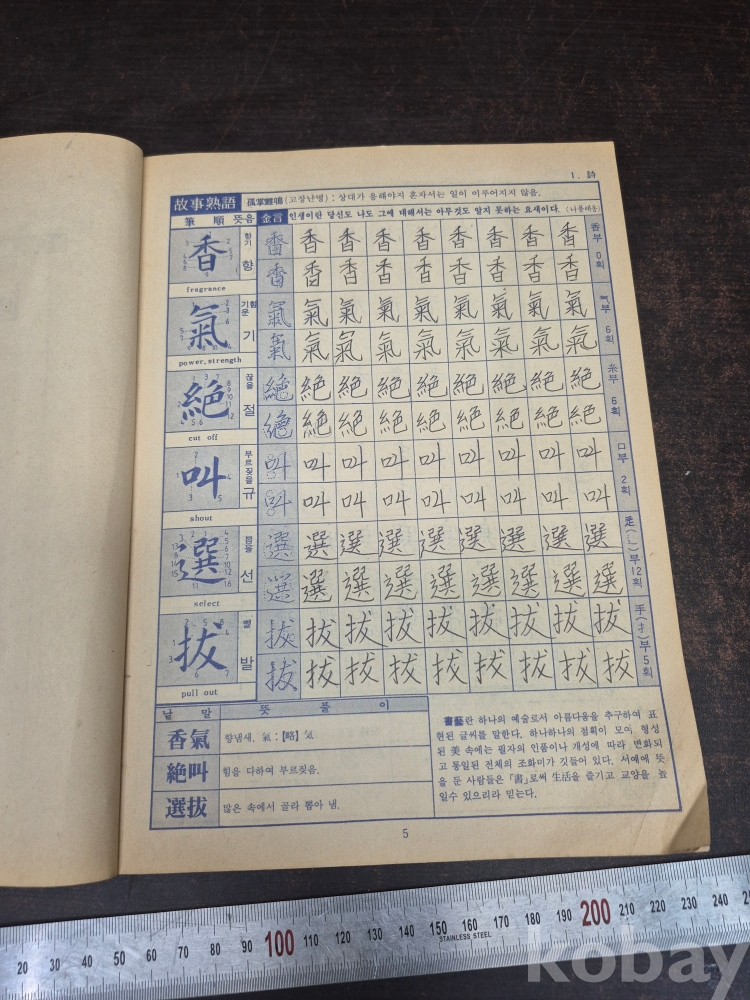 1. 詩
故事熟語 孤掌難鳴(고장난명) : 상대가 응해야지 혼자서는 일이 이루어지지 않음.
筆順 뜻음 金言 인생이란 당신도 나도 그에 대해서는 아무것도 알지 못하는 요새이다. (나폴레옹)
香 향기 향 香 香 香 香 香 香 香 香 香 香부 0획
香 香 香 香 香 香 香 香 香
fragrance
氣 기운 힘 기 氣 氣 氣 氣 氣 氣 氣 氣 氣 气부 6획
氣 氣 氣 氣 氣 氣 氣 氣 氣
power, strength
絶 끊을 절 絶 絶 絶 絶 絶 絶 絶 絶 絶 糸부 6획
絶 絶 絶 絶 絶 絶 絶 絶 絶
cut off
叫 부르짖을 규 叫 叫 叫 叫 叫 叫 叫 叫 叫 口부 2획
叫 叫 叫 叫 叫 叫 叫 叫 叫
shout
選 뽑을 선 選 選 選 選 選 選 選 選 選 辵(辶)부 12획
選 選 選 選 選 選 選 選 選
select
拔 뺄 발 拔 拔 拔 拔 拔 拔 拔 拔 拔 手(扌)부 5획
拔 拔 拔 拔 拔 拔 拔 拔 拔
pull out
낱말 뜻풀이
香氣 향냄새. 氣 : 【略】 気
絶叫 힘을 다하여 부르짖음.
選拔 많은 속에서 골라 뽑아 냄.
書藝란 하나의 예술로서 아름다움을 추구하여 표
현된 글씨를 말한다. 하나하나의 점획이 모여 형성
된 美 속에는 필자의 인품이나 개성에 따라 변화되
고 통일된 전체의 조화미가 깃들어 있다. 서예에 뜻
을 둔 사람들은 「書」로써 生活을 즐기고 교양을 높
일수 있으리라 믿는다.
5
20 30 40 50 60 70 80 90 100 110 120 130 140 150 160 170 180 190 200 210 220 230 240
STAINLESS STEEL
kobay